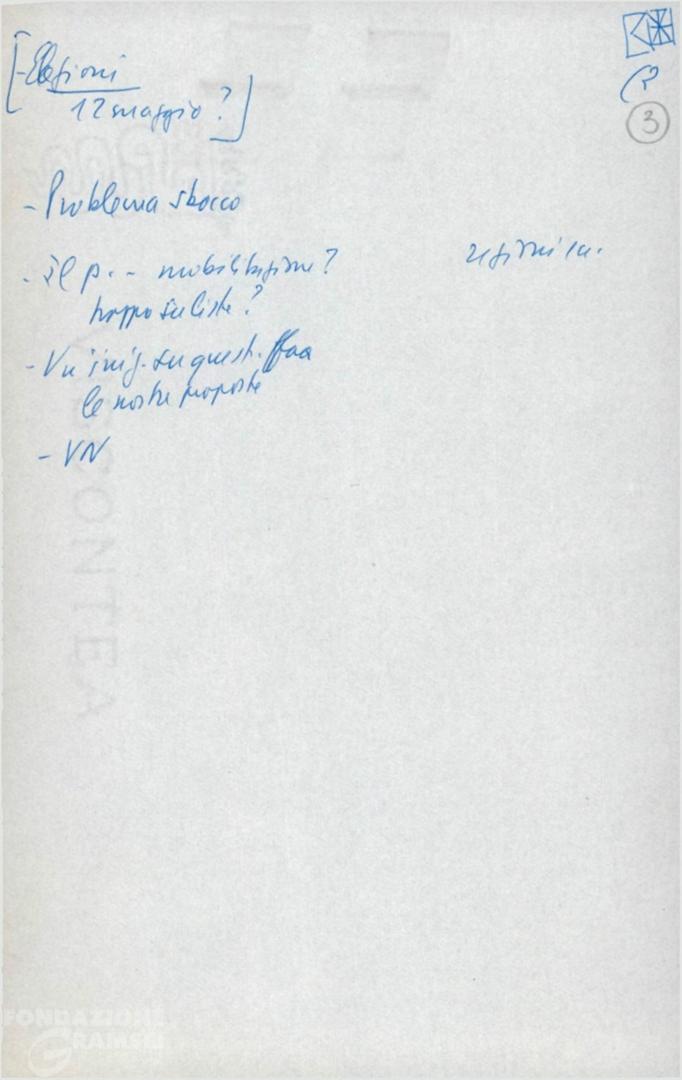 [- Elezioni
12 maggio ?]
3
- Problema sbocco
- Il p. - mobilitazione ?
troppo su liste ?
- Un' iniz. su quest.
le nostre proposte
- VN
VISCONTEA
FONDAZIONE
GRAMSCI